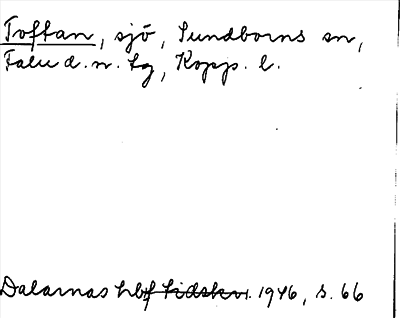 Toftan, sjö, Sundborns sn,
Falu d. n. tg, Kopp. l.
Dalarnas hbf tidskr. 1946, s. 66